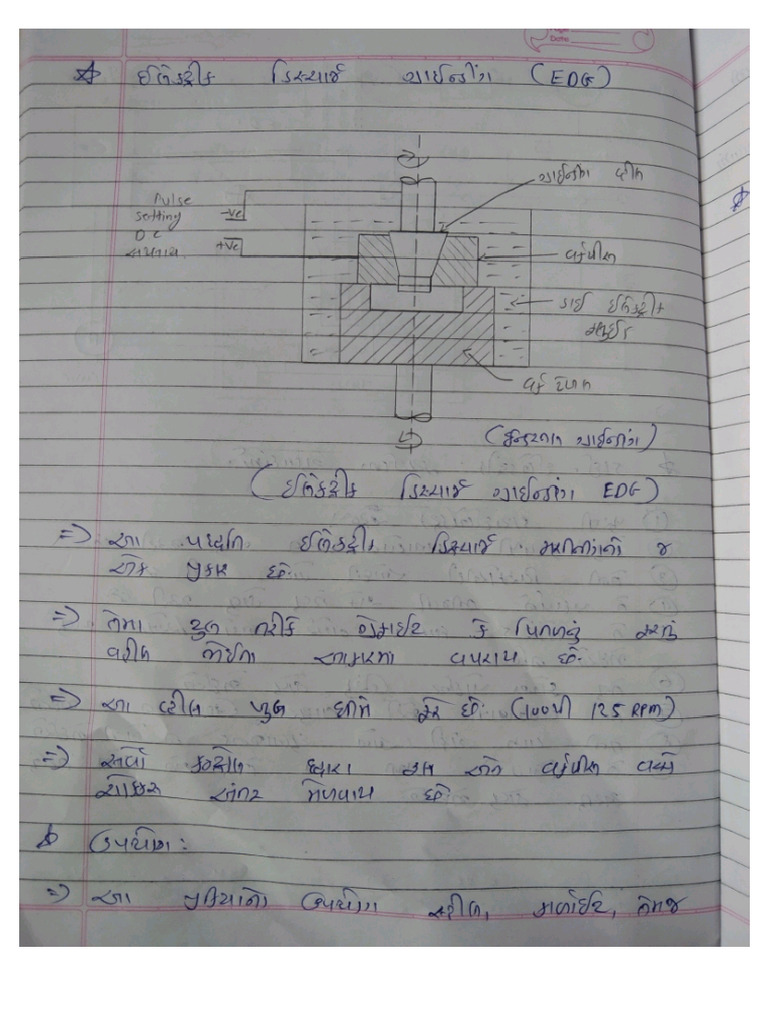 Date
ઇલેક્ટ્રીક ડિસ્ચાર્જ ગ્રાઇન્ડીંગ (EDG)
Pulse
setting
DC
સપ્લાય
-ve
+ve
ગ્રાઇન્ડીંગ વ્હીલ
વર્કપીસ
ડાઇ ઇલેક્ટ્રીક
(ઇન્ટરનલ ગ્રાઇન્ડીંગ)
(ઇલેક્ટ્રીક ડિસ્ચાર્જ ગ્રાઇન્ડીંગ EDG)
=> આ પધ્ધતિ ઇલેક્ટ્રીક ડિસ્ચાર્જ મશીનીંગનો જ
એક પ્રકાર છે.
=> તેમા ટુલ તરીકે ગ્રેફાઇટ કે પિત્તળનું
વ્હીલ વપરાય છે.
=> આ વ્હીલ ખુબ ધીમે ફરે છે. (100થી 125 RPM)
=> સર્વો કન્ટ્રોલ દ્વારા ટુલ અને વર્કપીસ વચ્ચે
ચોક્કસ અંતર મેળવાય છે.
ઉપયોગ:
=> આ પ્રક્રિયાનો ઉપયોગ સ્ટીલ, કાર્બાઇડ, તેમજ